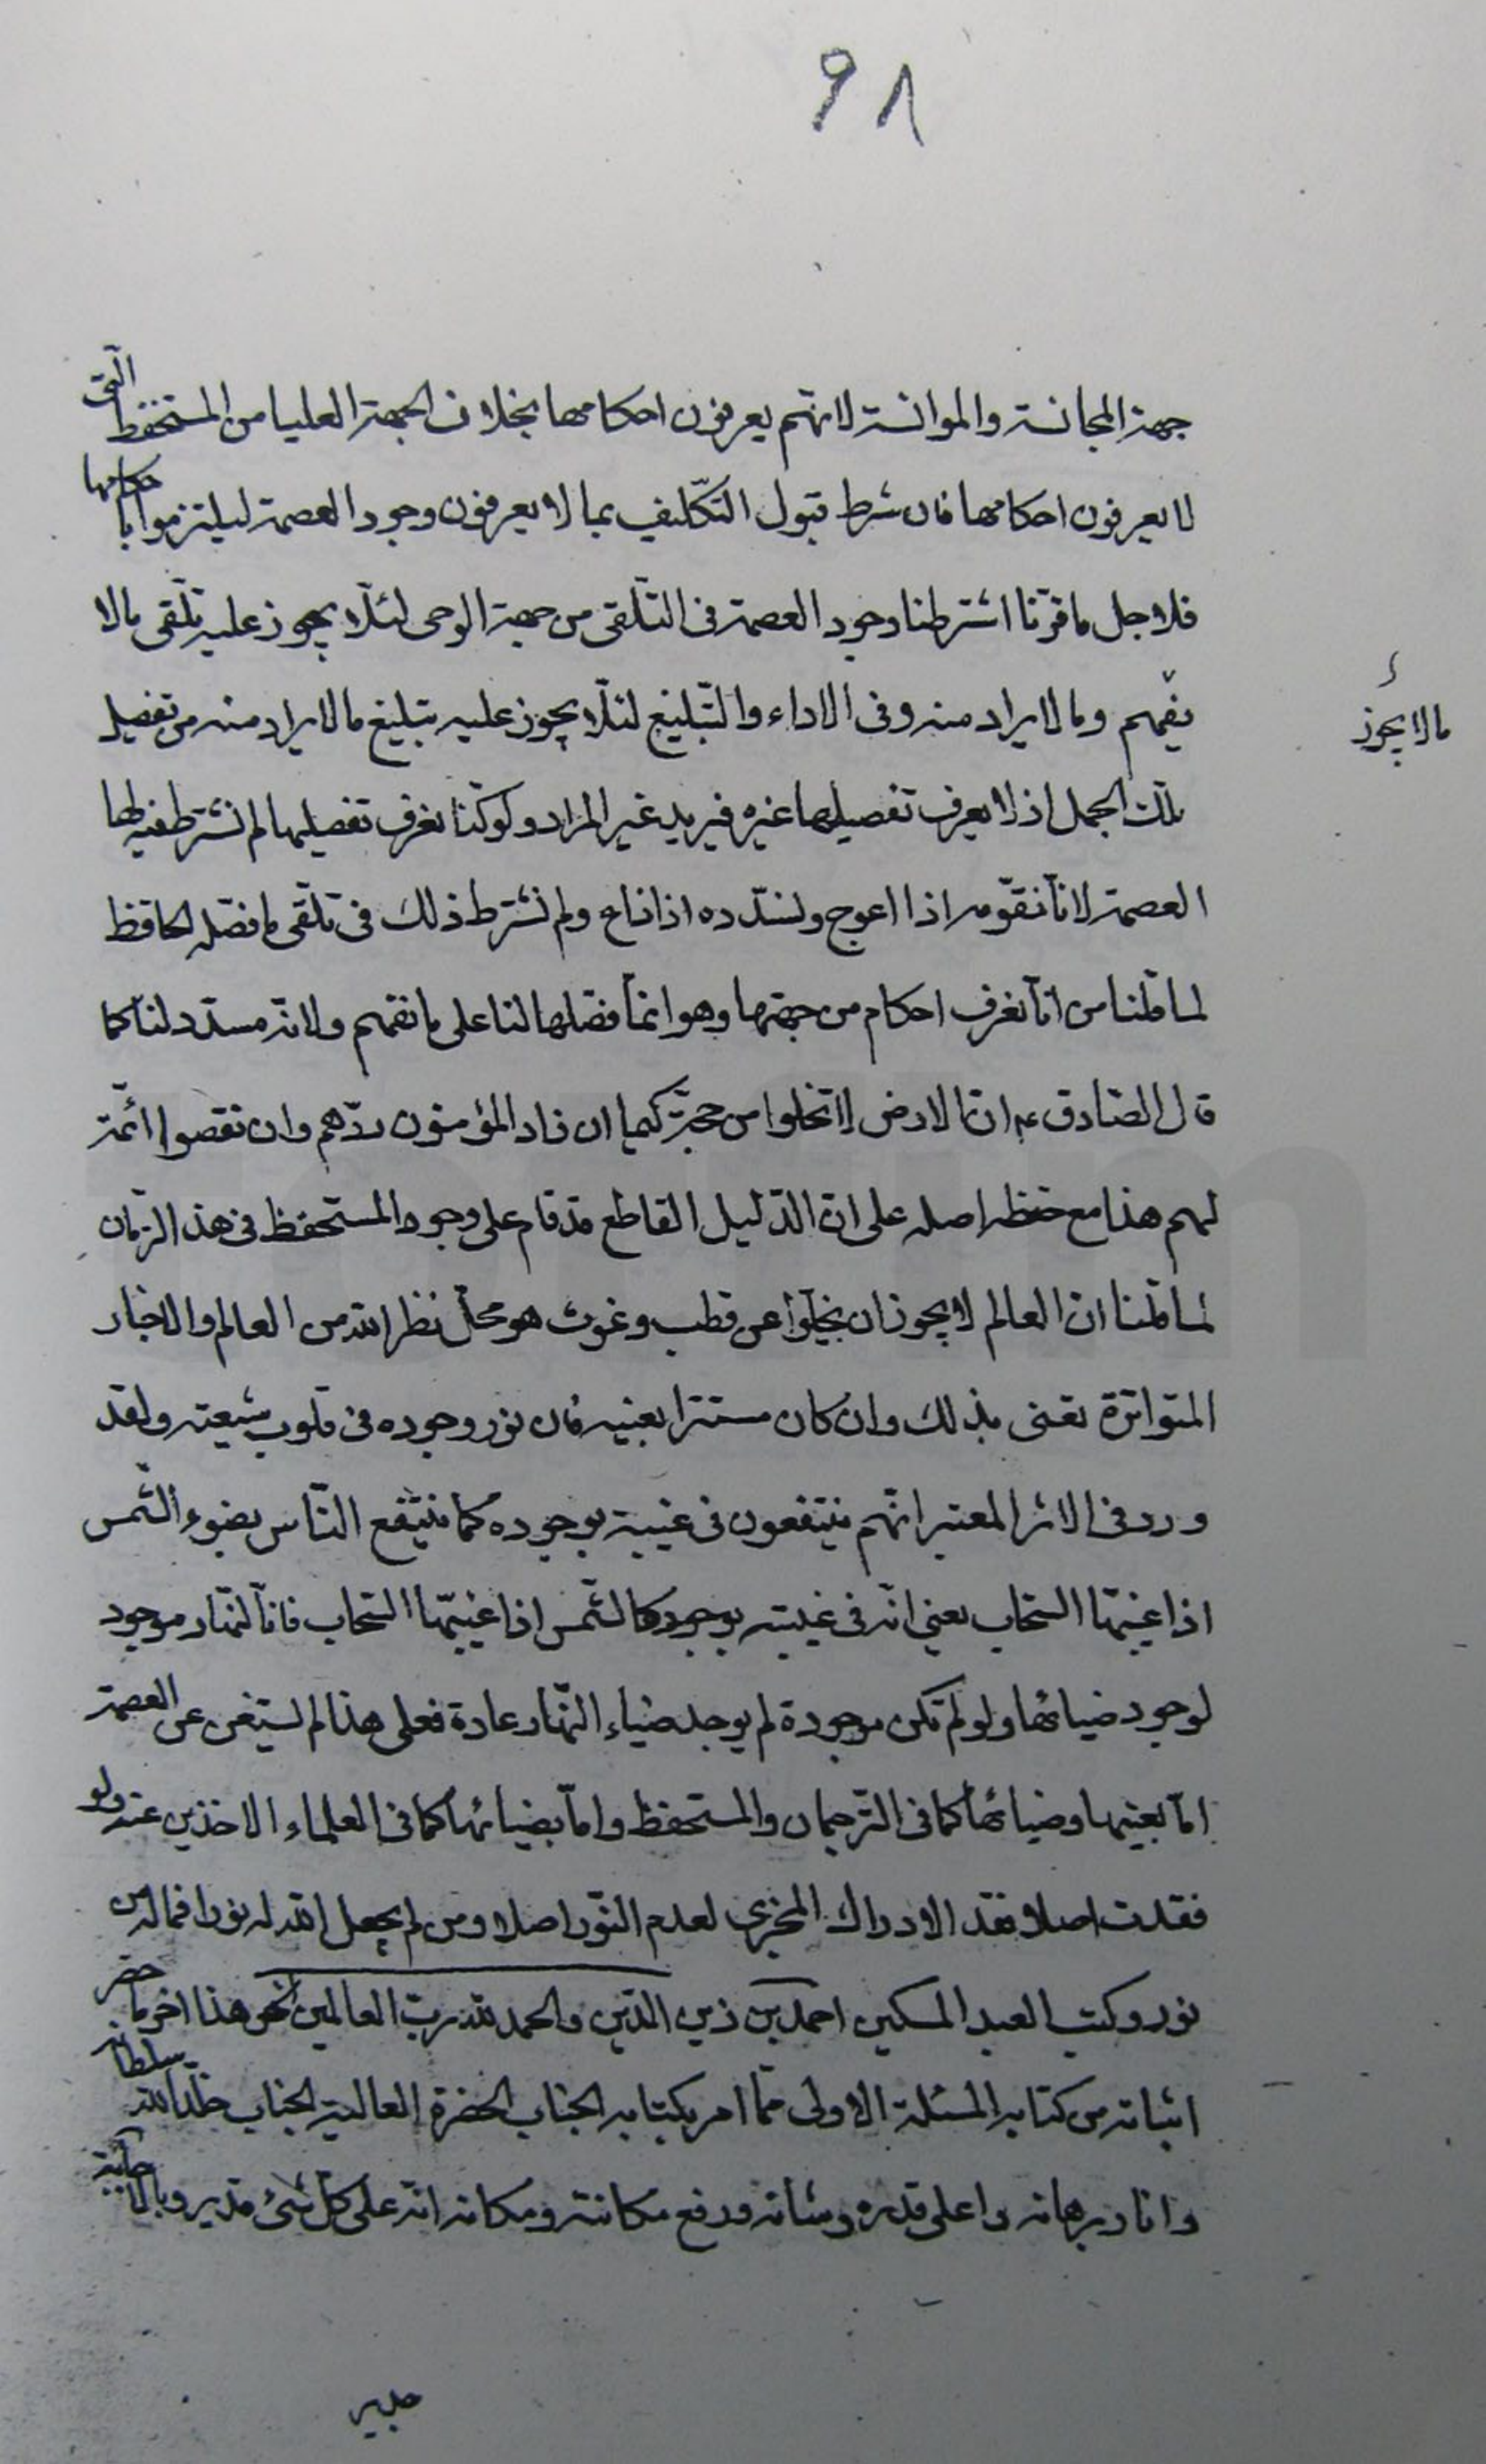 ٩٨
جهة المجانسة والموانسة لانهم يعرفون احكامها بخلاف الجهة العليا من المستحفظ التى
لا يعرفون احكامها فان شرط قبول التكليف بما لا يعرفون وجود العصمة ليلتزموا باحكامها
فلاجل ما قررنا اشترطنا وجود العصمة فى التلقى من جهة الوحى لئلا يجوز عليه تلقى مالا
يفهم وما لا يراد منه وفى الاداء والتبليغ لئلا يجوز عليه تبليغ ما لا يراد منه من تفصيل
مالا يجوز
تلك الجمل اذ لا يعرف تفصيلها غيره فيريد غير المراد ولو كنا نعرف تفصيلها لم نشترط فيه لها
العصمة لانا نقومه اذا اعوج ونسدده اذا زاغ ولم نشترط ذلك فى تلقى ما فصله الحافظ
لما قلنا من انا نعرف احكام من جهتها وهو انما فصلها لنا على ما نفهم ولانه مسدد لنا كما
قال الصادق عم ان الارض لا تخلوا من حجة كيما ان زاد المؤمنون ردهم وان نقصوا اتمه
لهم هذا مع حفظه اصله على ان الدليل القاطع قد قام على وجود المستحفظ فى هذ الزمان
لما قلنا ان العالم لا يجوز ان يخلوا عن قطب وغوث هو محل نظر الله من العالم والاخبار
المتواترة تعنى بذلك وان كان مستترا بعينه فان نور وجوده فى قلوب شيعته ولقد
ورد فى الاثر المعتبر انهم ينتفعون فى غيبته بوجوده كما ينتفع الناس بضوء الشمس
اذا غيبها السحاب يعنى انه فى غيبته بوجوده كالشمس اذا غيبها السحاب فان النهار موجود
لوجود ضيائها ولو لم تكن موجودة لم يوجد ضياء النهار عادة فعلى هذا لم يستغن عن العصمة
اما بعينها وضيائها كما فى الترجمان والمستحفظ واما بضيائها كما فى العلماء الاخذين عنه ولو
فقدت اصلا فقد الادراك المجزى لعدم النور اصلا ومن لم يجعل الله له نورا فماله من
نور وكتب العبد المسكين احمد بن زين الدين والحمد لله رب العالمين هذا اخر ما حضر
اثباته من كتابه المسئلة الاولى مما امر بكتابه الجناب الحضرة العالية الجناب خلد الله سلطانه
وانار برهانه واعلى قدره وشانه ورفع مكانته ومكانه انه على كل شئ قدير وبالاجابة
جدير